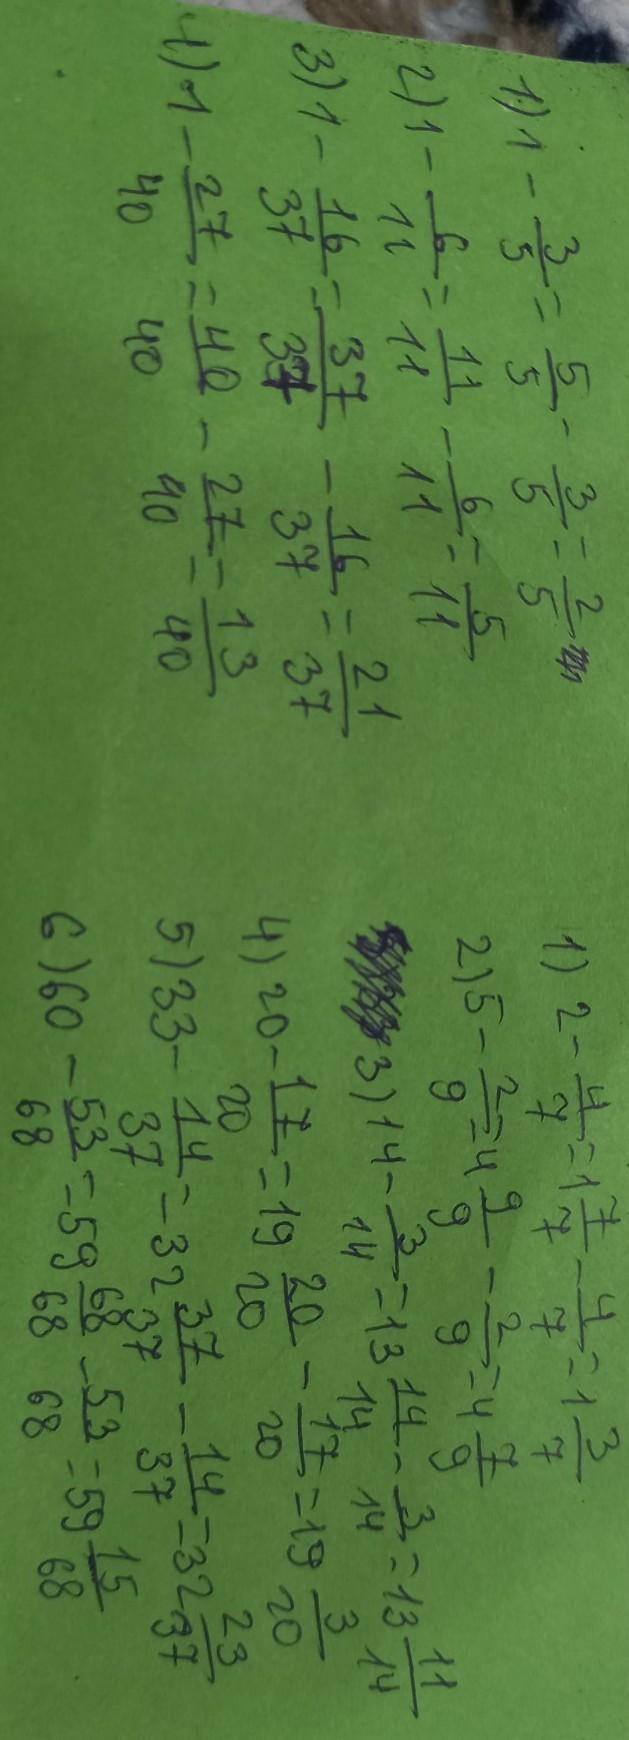 1) 1 - 3/5 = 5/5 - 3/5 = 2/5
2) 1 - 6/11 = 11/11 - 6/11 = 5/11
3) 1 - 16/37 = 37/37 - 16/37 = 21/37
4) 1 - 27/40 = 40/40 - 27/40 = 13/40
1) 2 - 4/7 = 1 7/7 - 4/7 = 1 3/7
2) 5 - 2/9 = 4 9/9 - 2/9 = 4 7/9
3) 14 - 3/14 = 13 14/14 - 3/14 = 13 11/14
4) 20 - 17/20 = 19 20/20 - 17/20 = 19 3/20
5) 33 - 14/37 = 32 37/37 - 14/37 = 32 23/37
6) 60 - 53/68 = 59 68/68 - 53/68 = 59 15/68